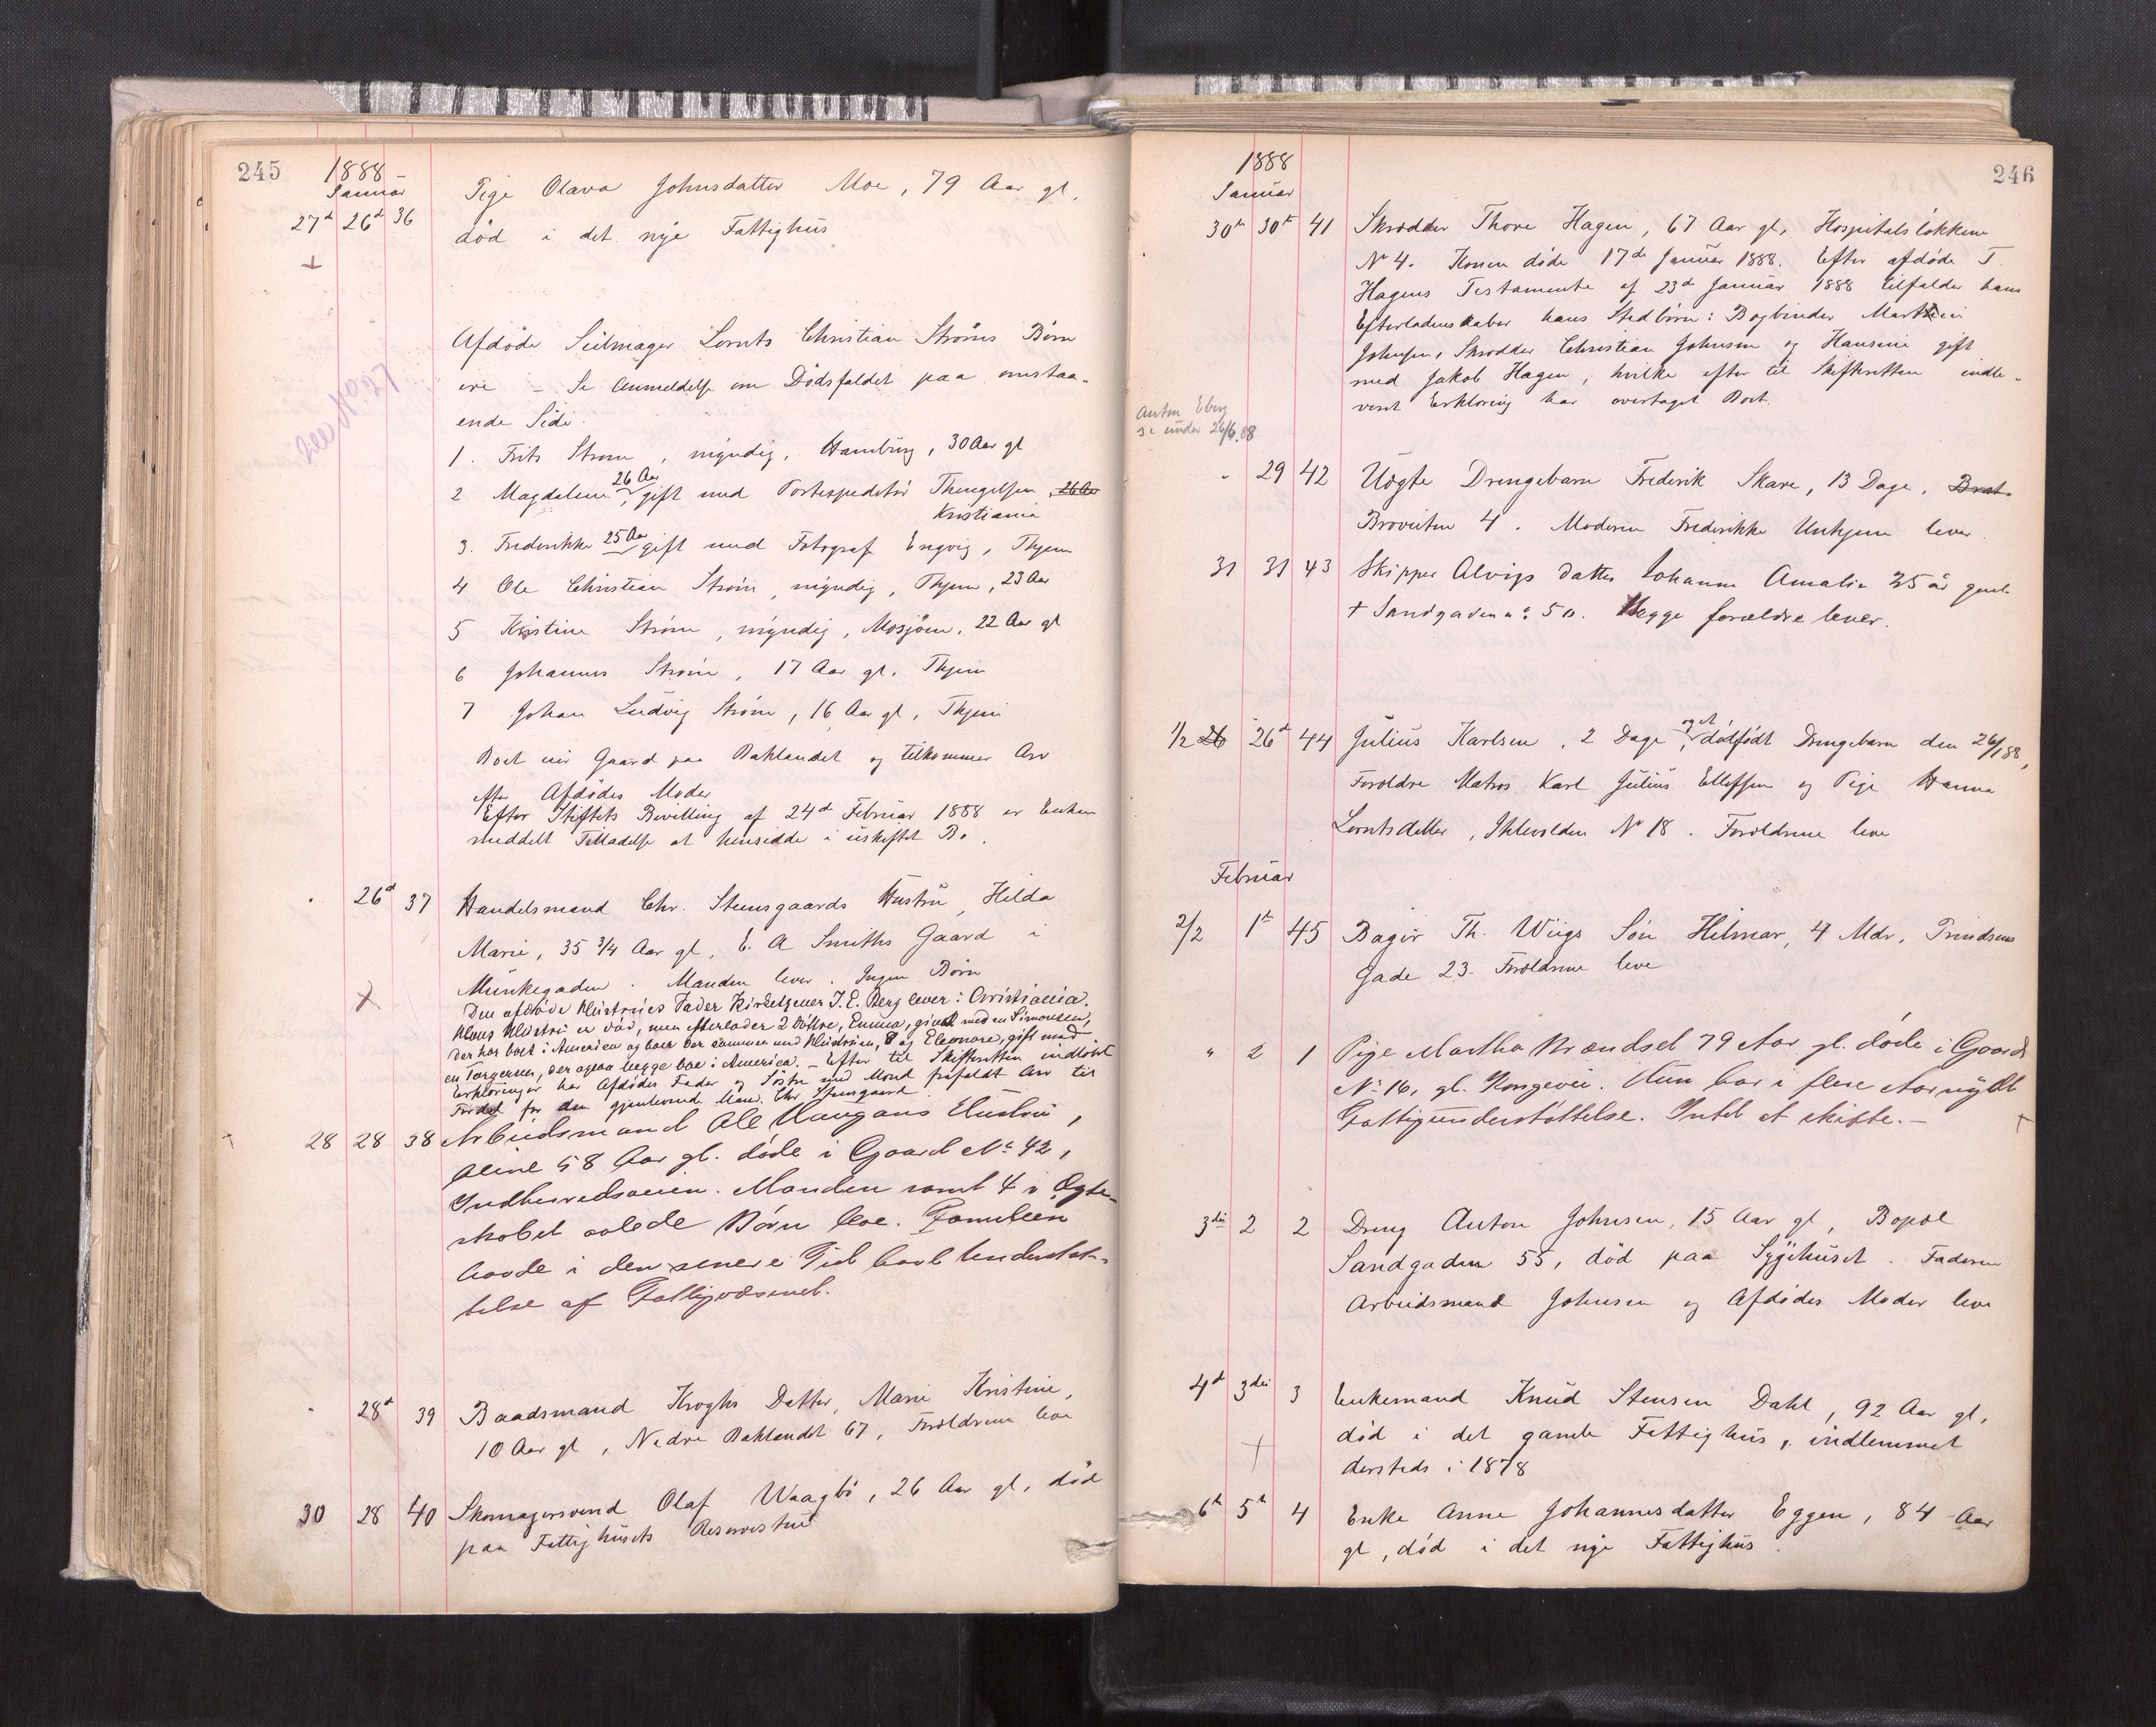 245
1888
Januar
27d 26d 36 Pige Olava Johnsdatter Moe, 79 Aar gl,
død i det nye Fattighus
till No 27
Afdøde Seilmager Lornts Christian Strøms Børn
ere – Se Anmeldelse om Dødsfaldet paa omstaa-
ende Side.
1. Frits Strøm, myndig, Hamburg, 30 Aar gl
26 Aar
2 Magdalene, gift med Postexpeditør Thengelsen, 26 Aar
Kristiania
3. Frederikke 25 Aar gift med Fotograf Engvig, Thjem
4 Ole Christian Strøm, myndig, Thjem, 23 Aar
5 Kristine Strøm, myndig, Mosjøen, 22 Aar gl
6 Johannes Strøm, 17 Aar gl. Thjem
7 Johan Ludvig Strøm, 16 Aar gl, Thjem
Boet eier Gaard paa Baklandet og tilkommer Arv
efter Afdødes Moder
Efter Stiftets Bevilling af 24d Februar 1888 er Enken
meddelt Tilladelse at hensidde i uskiftet Bo.
26d 37 Handelsmand Chr. Steensgaards Hustru, Hilda
Marie, 35 3/4 Aar gl, E. A Smiths Gaard i
Munkegaden. Manden lever. Ingen Børn
Den afdøde Hustrues Fader Kirketjener J. E. Berg lever i Christiania.
Hans Hustru er død, men efterlader 2 Døttre, Emma, givet med en Simonsen,
der har boet i America og boer der sammen med Hustruen, & og Eleonore, gift med
en Torgersen, der ogsaa begge boe i America. – Efter til Skifteretten indløbet
Erklæringer har Afdødes Fader og Søstre med Mænd frafaldt Arv til
Fordel for den gjenlevende Mand Chr Steensgaard.
28 28 38 Arbeidsmand Ole Haugans Hustru,
Oline 58 Aar gl. døde i Gaard No 42,
Indherredsveien. Manden samt 4 i Ægte-
skabet avlede Børn leve. Familien
havde i den senere Tid havt Understøt-
telse af Fattigvæsenet.
28d 39 Baadsmand Kroghs Datter, Marie Kristine,
10 Aar gl, Nedre Baklandet 67, Forældrene leve
30 28 40 Skomagersvend Olaf Waagbø, 26 Aar gl, død
paa Fattighusets Reservestue
246
1888
Januar
30te 30te 41 Skrædder Thore Hagen, 67 Aar gl, Hospitalsløkken
No 4. Konen døde 17de Januar 1888. Efter afdøde T.
Hagens Testamente af 23de Januar 1888 tilfalder hans
Efterladenskaber hans Stedbørn: Bogbinder Marthin
Johnsen, Skrædder Christian Johnsen og Hansine gift
med Jakob Hagen, hvilke efter til Skifteretten indle-
veret Erklæring har overtaget Boet.
Anton Eberg
se under 26/6.88
29 42 Uægte Drengebarn Frederik Skare, 13 Dage, Brat-
Broveiten 4. Moderen Frederikke Unhjem lever.
31 31 43 Skipper Alvigs datter Johanne Amalie 25 år gml.
† Sandgaden no 50. Begge forældre lever.
1/2 26 26d 44 Julius Karlsen, 2 Dage, og et dødfødt Drengebarn den 26/1 88,
Forældre Matros Karl Julius Ellefsen og Pige Hanna
Lorntsdatter, Ihlevolden No 18. Forældrene leve
Februar
2/2 1te 45 Bager Th. Wiigs Søn Hilmar, 4 Mdr, Prindsens
Gade 23. Forældrene leve
" 2 1 Pige Martha Brændsel 79 Aar gl. døde i Gaard
No 16, gl. Kongevei. Hun har i flere Aar nydt
Fattigunderstøttelse. Intet at skifte. –
3die 2 2 Dreng Anton Johnsen, 15 Aar gl, Bopæl
Sandgaden 55, død paa Sygehuset. Faderen
Arbeidsmand Johnsen og Afdødes Moder leve
4d 3die 3 Enkemand Knud Stensen Dahl, 92 Aar gl,
død i det gamle Fattighus, indlemmet
dersteds i 1878
6te 5te 4 Enke Anne Johannesdatter Eggen, 84 Aar
gl, død i det nye Fattighus.